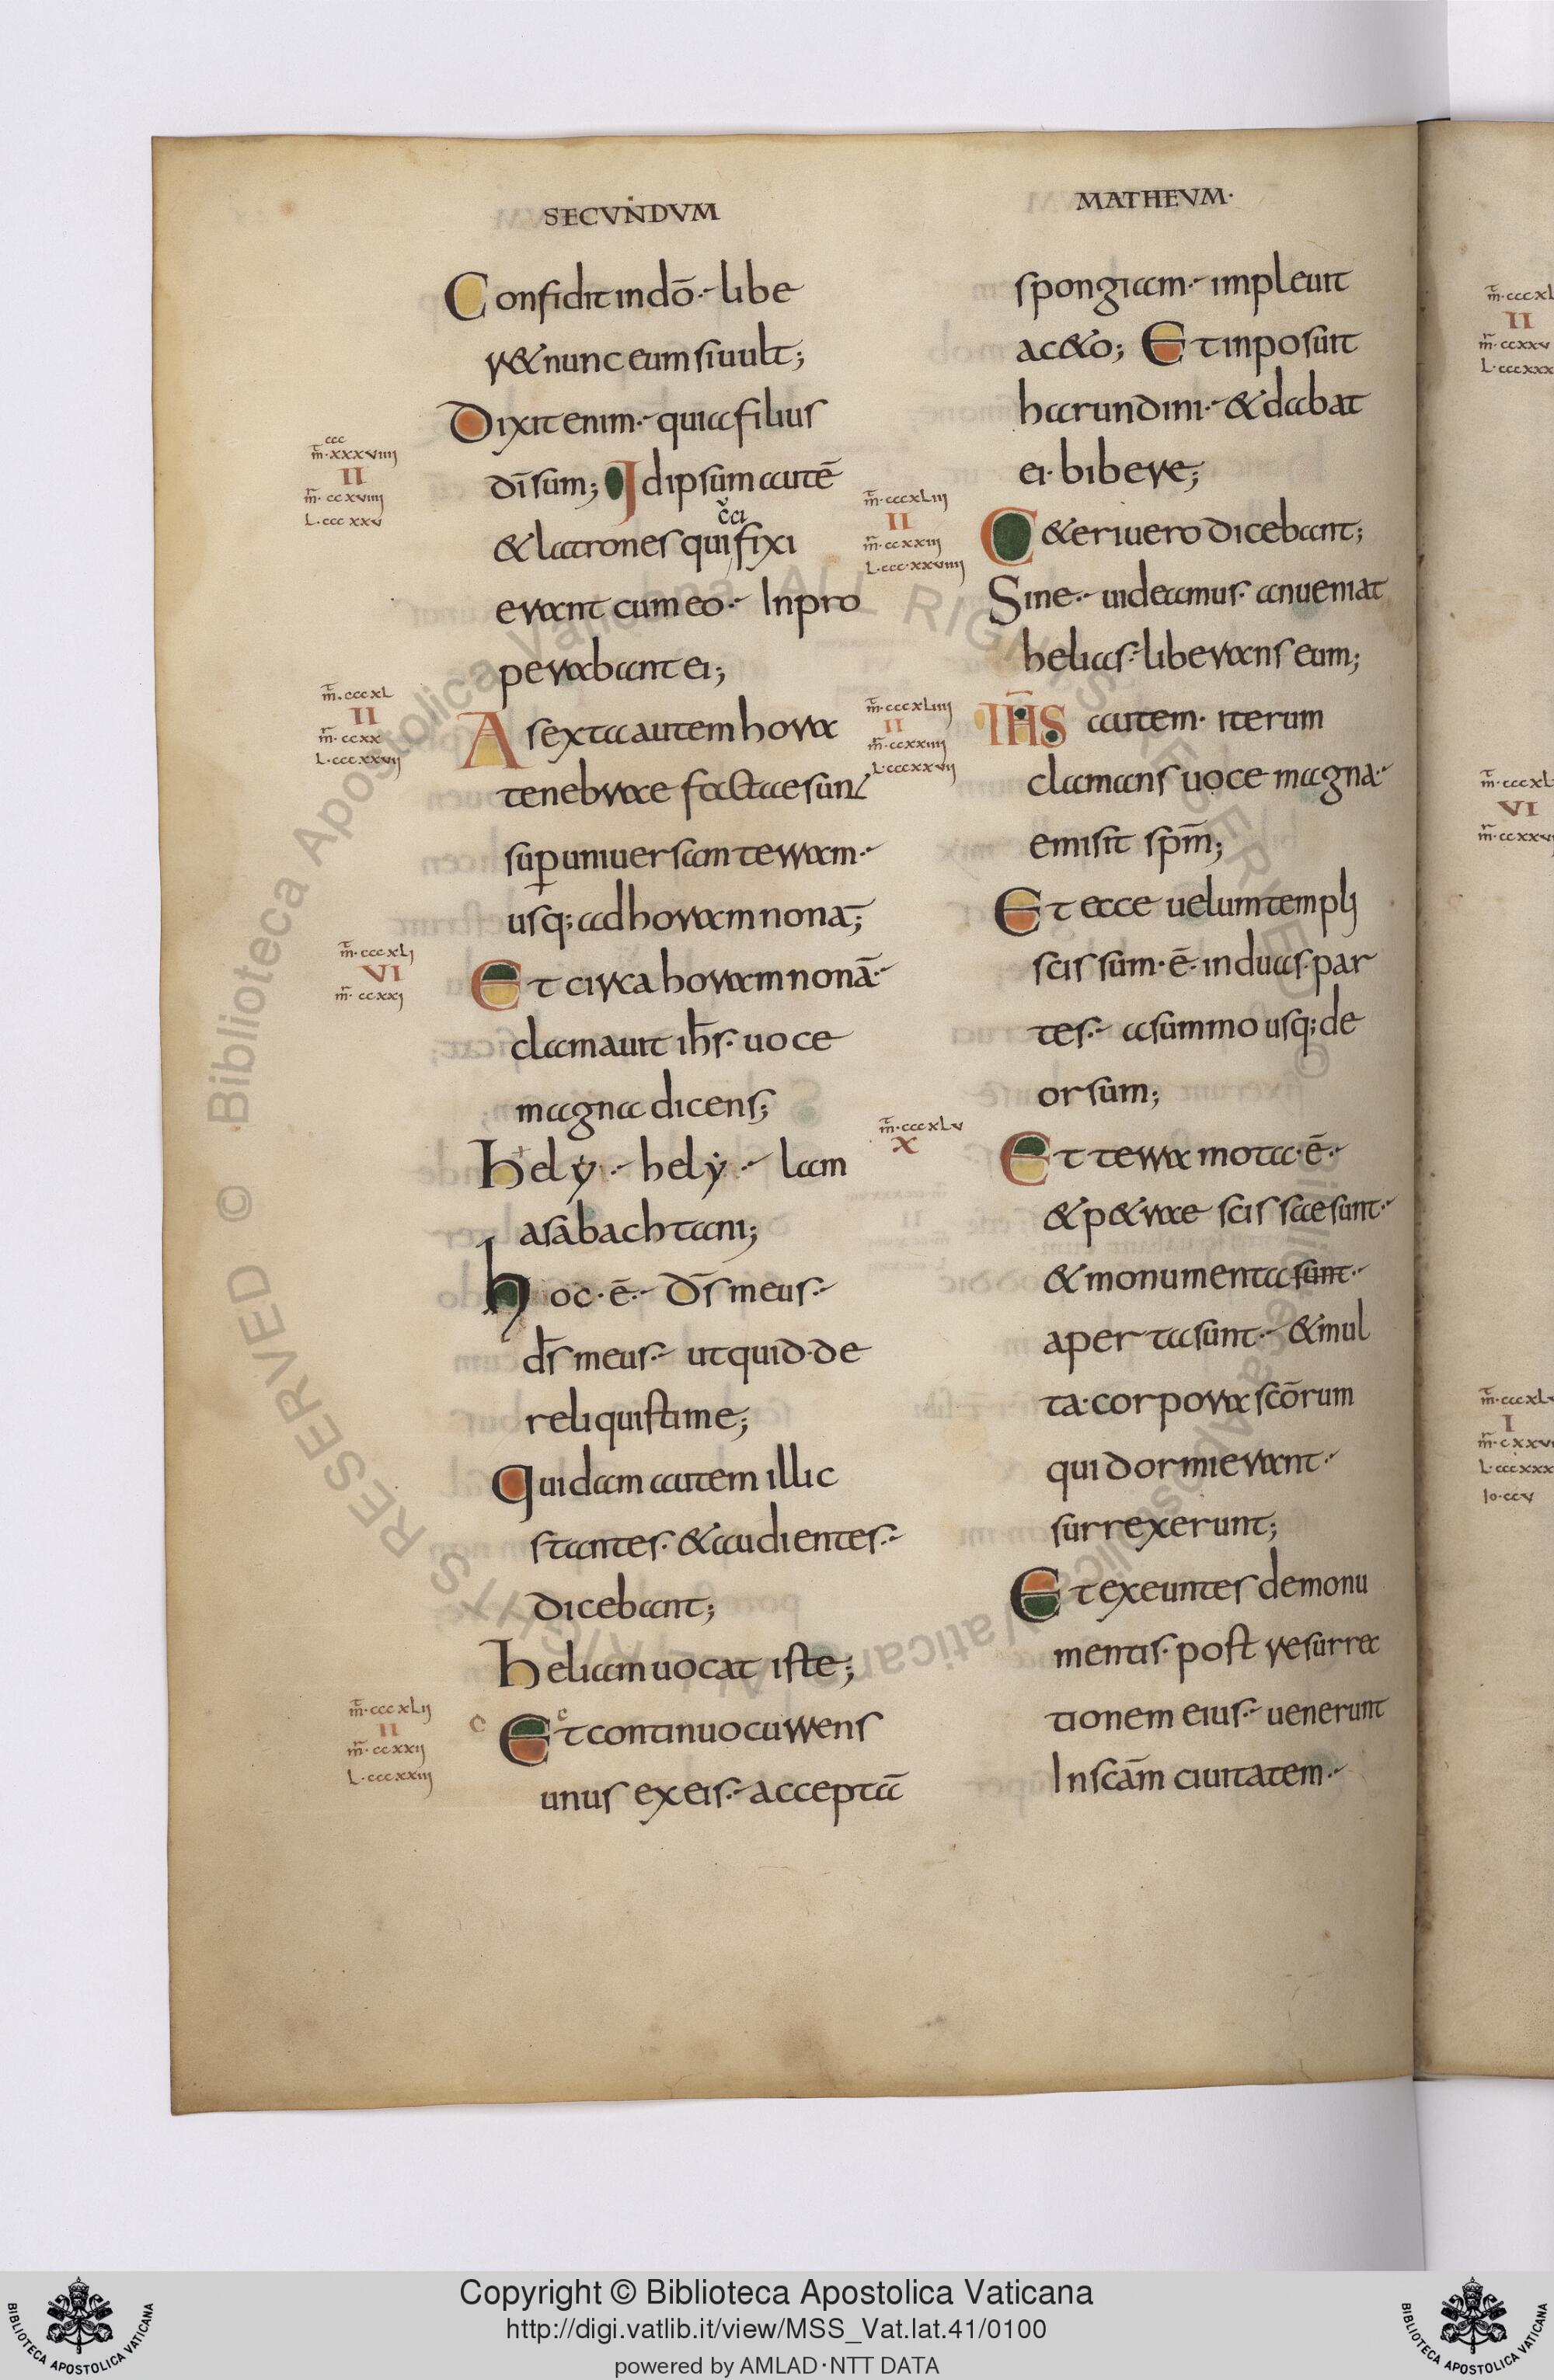 SECUNDUM
Confidit in dō. libe
r& nunc eum si uult;
Dixit enim. quia filius
dī sum; Idipsum autē
& latrones qui fixi
c̄ci
erant cum eo. Inpro
perabant ei;
A sexta autem hora
tenebrae factae sunt
sup uniuersam terram.
usq; ad horam nonā;
Et circa horam nonā.
clamauit ihs. uoce
magna dicens;
Hely. hely. lam
asabachtani;
hoc. ē. ds meus.
ds meus. ut quid. de
reliquisti me;
Quidam autem illic
stantes. & audientes.
dicebant;
heliam uocat iste;
Et continuo currens
c
c
unus ex eis. acceptā
m̄.xxxviiii
ccc
II
m̄. ccxviiii
L. cccxxv
m̄. cccxL
II
m̄. ccxx
L. cccxxvij
m̄. cccxLj
VI
m̄. ccxxj
m̄. cccxLij
II
m̄. ccxxij
L. cccxxiij
MATHEUM.
spongiam. impleuit
ac&o; Et inposuit
harundini. & dabat
ei. bibere;
C&eri uero dicebant;
Sine. uideamus. an ueniat
helias. liberans eum;
IHS autem. iterum
clamans uoce magna.
emisit spm̄;
Et ecce uelum templj
scissum. ē. in duas. par
tes. a summo usq; de
orsum;
Et terra mota. ē.
& p&rae scissae sunt.
& monumenta sunt.
aperta sunt. & mul
ta. corpora scōrum
qui dormierant.
surrexerunt;
Et exeuntes de monu
mentis. post resurrec
tionem eius. uenerunt
In scām ciuitatem.
m̄. cccxLiij
II
m̄. ccxxiij
L. cccxxviiij
m̄. cccxLiiij
II
m̄. ccxxiiij
L. cccxxvij
m̄. cccxLv
X
m̄. cccxL
II
m̄. ccxxv
L. cccxxx
m̄. cccxL
VI
m̄. ccxxv
m̄. cccxLv
I
m̄. cxxv
L. cccxxx
Io. ccv
© Biblioteca Apostolica Vaticana ALL RIGHTS RESERVED
Copyright © Biblioteca Apostolica Vaticana
http://digi.vatlib.it/view/MSS_Vat.lat.41/0100
powered by AMLAD·NTT DATA
BIBLIOTECA APOSTOLICA VATICANA
BIBLIOTECA APOSTOLICA VATICANA